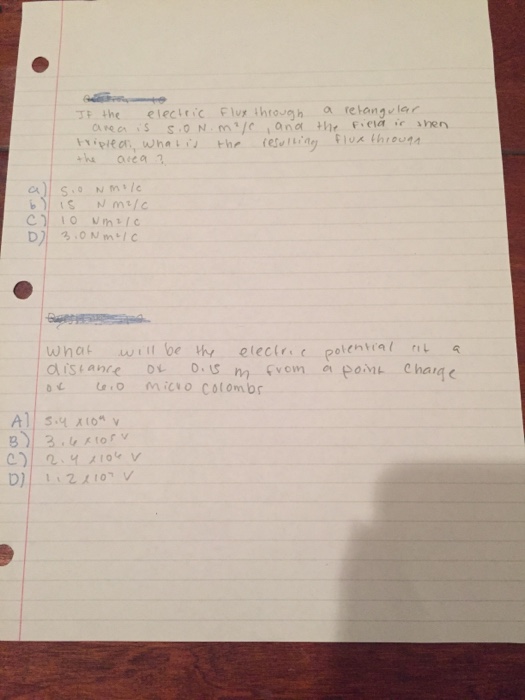 If the electric flux through a retangular
area is 5.0 N·m²/c, and the field is then
tripled, what is the resulting flux through
the area?
a) 5.0 Nm²/c
b) 15 Nm²/c
C) 10 Nm²/c
D) 3.0 Nm²/c
What will be the electric potential at a
distance of 0.15 m from a point charge
of 6.0 micro colombs
A) 5.4 x10⁴ V
B) 3.6 x10⁵ V
C) 2.4 x10⁶ V
D) 1.2 x10⁷ V